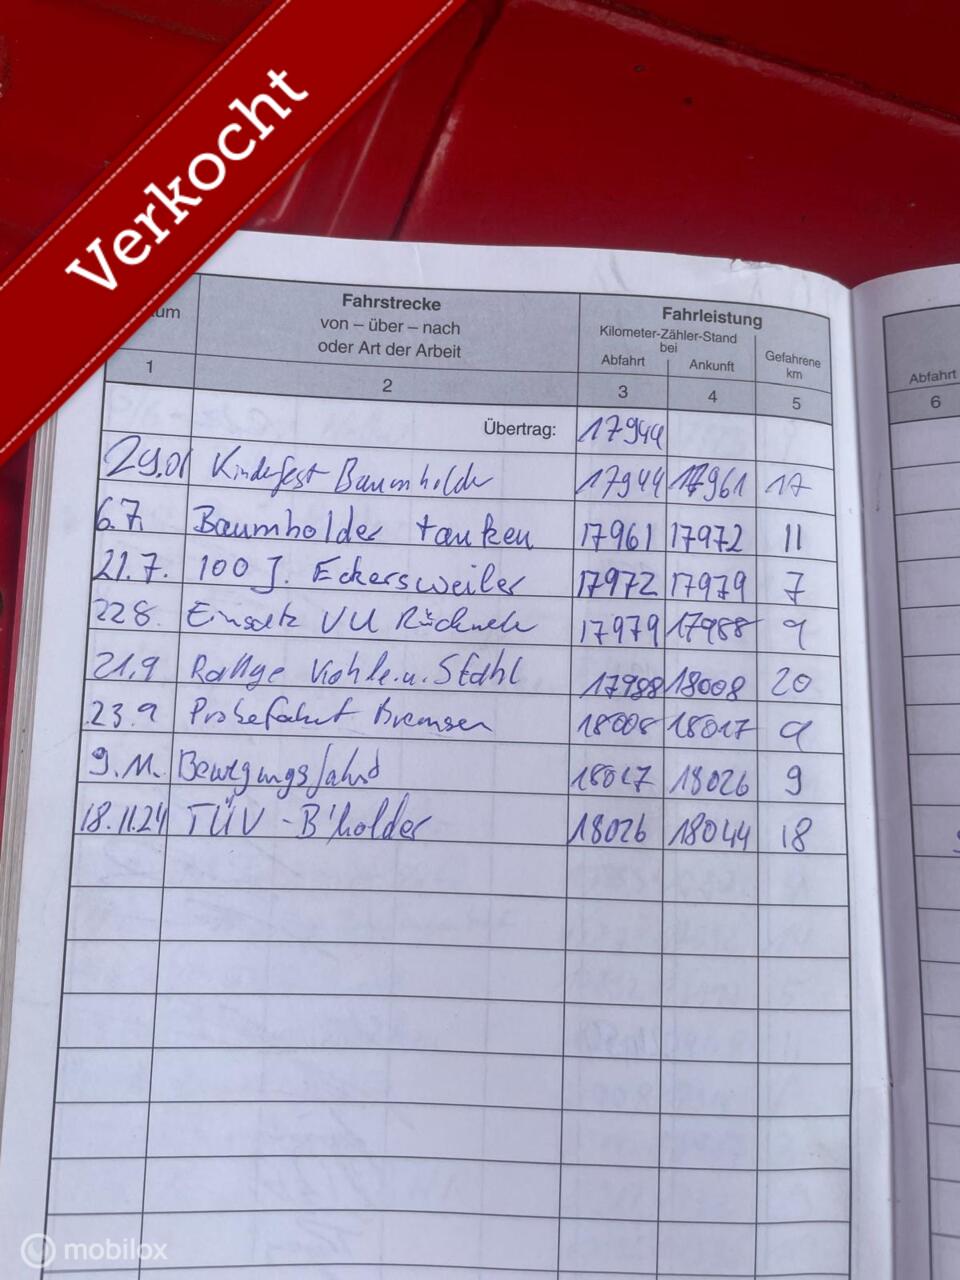 Verkocht
um
Fahrstrecke
von – über – nach
oder Art der Arbeit
Fahrleistung
Kilometer-Zähler-Stand
bei
Abfahrt
Ankunft
Gefahrene
km
Abfahrt
1 2 3 4 5 6
Übertrag: 17944
29.01 Kinderfest Baumholder 17944 17961 17
6.7. Baumholder tanken 17961 17972 11
21.7. 100 J. Eckersweiler 17972 17979 7
22.8. Einsatz VU 17979 17988 9
21.9 Kohle u. Stahl 17988 18008 20
23.9 Probefahrt Bremsen 18008 18017 9
9.11. Bewegungsfahrd 18017 18026 9
18.11.24 TÜV - B'holder 18026 18044 18
mobilox